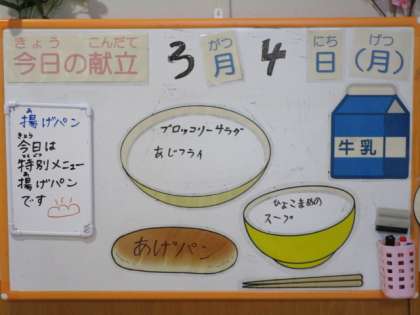 きょう こんだて がつ にち げつ
今日の献立 3月4日(月)
あ
揚げパン
きょう
今日は
とくべつ
特別メニュー
あ
揚げパン
です
ブロッコリーサラダ
あじフライ
牛乳
ひよこまめの
スープ
あげパン